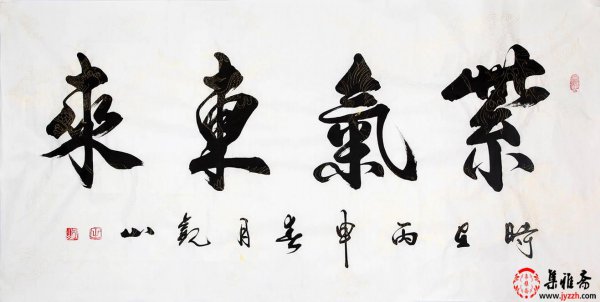 紫氣東來
時在丙申春月觀山
集雅斋
www.jyzzh.com